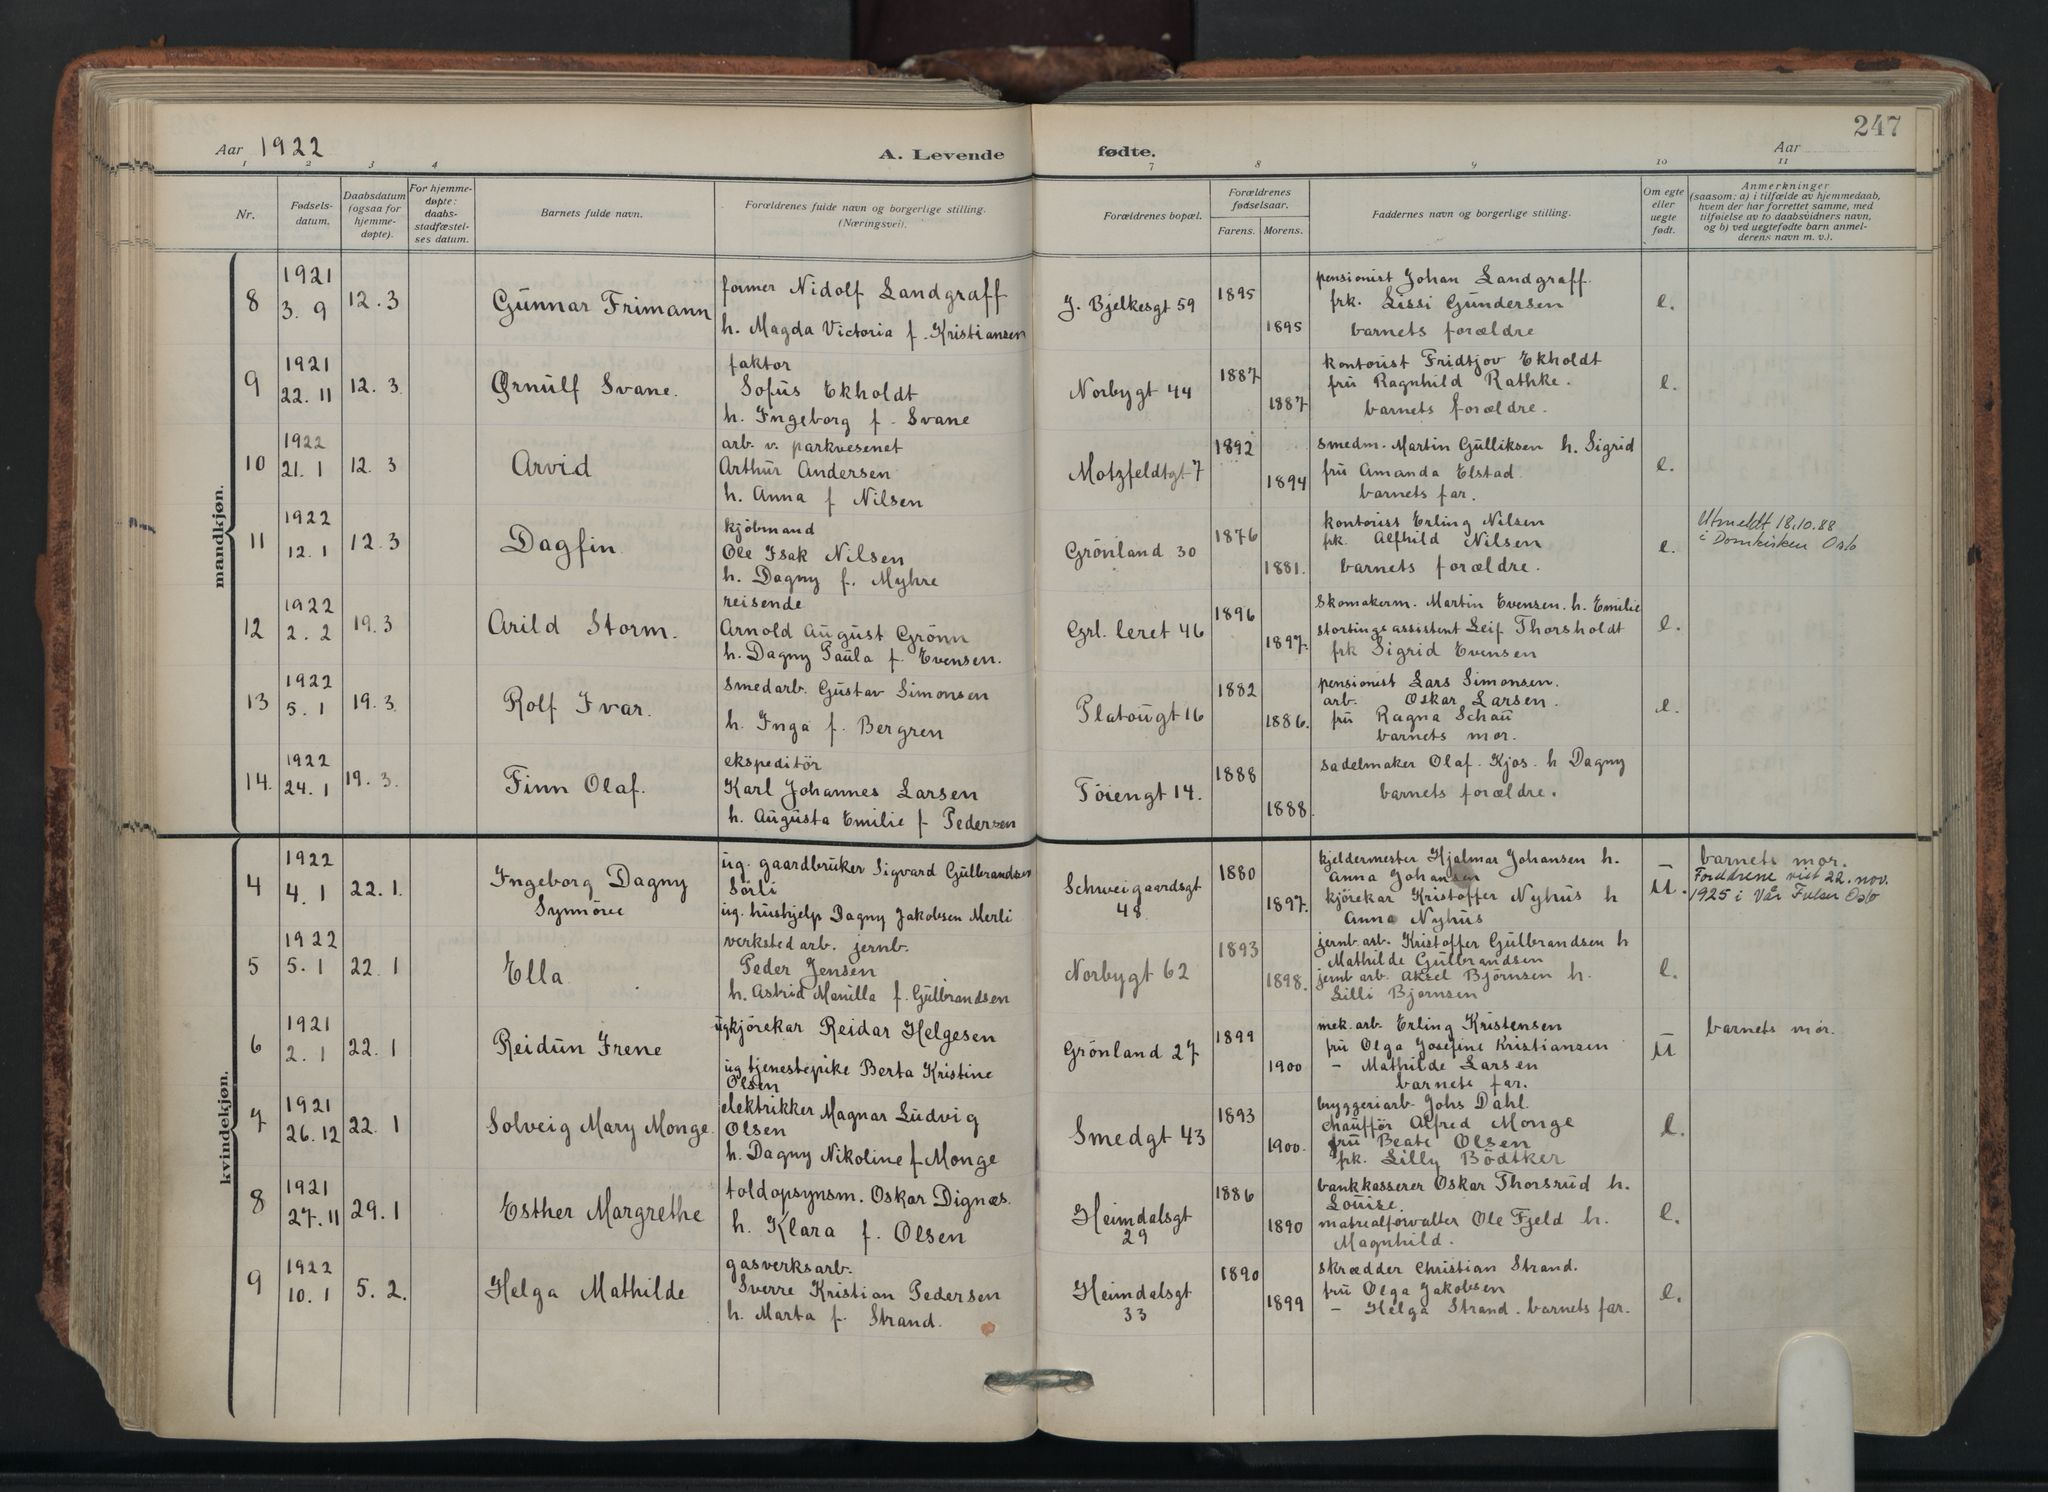 247
Aar 1922
A. Levende fødte.
Aar
1 2 3 4 7 8 9 10 11
Nr.
Fødsels-
datum.
Daabsdatum
(ogsaa for
hjemme-
døpte).
For hjemme-
døpte:
daabs-
stadfæstel-
ses datum.
Barnets fulde navn.
Forældrenes fulde navn og borgerlige stilling.
(Næringsvei).
Forældrenes bopæl.
Forældrenes
fødselsaar.
Farens. Morens.
Faddernes navn og borgerlige stilling.
Om egte
eller
uegte
født.
Anmerkninger
(saasom: a) i tilfælde av hjemmedaab,
hvem der har forrettet samme, med
tilføielse av to daabsvidners navn,
og b) ved uegtefødte barn anmel-
derens navn m. v.).
mandkjøn.
8
1921
3. 9
12. 3
Gunnar Frimann
former Nidolf Landgraff
h. Magda Victoria f. Kristiansen
J. Bjelkesgt 59
1895
1895
pensionist Johan Landgraff.
frk. Lissi Gundersen
barnets forældre
e.
9
1921
22. 11
12. 3
Ørnulf Svane.
faktor
Sofus Ekholdt
h. Ingeborg f. Svane
Norbygt 44
1887
1887
kontorist Fridtjov Ekholdt
fru Ragnhild Rathke.
barnets forældre.
e.
10
1922
21. 1
12. 3
Arvid
arb. v. parkvesenet
Arthur Andersen
h. Anna f Nilsen
Motzfeldtgt 7
1892
1894
smedm. Martin Gulliksen h. Sigrid
fru Amanda Elstad
barnets far.
e.
11
1922
12. 1
12. 3
Dagfin
kjöbmand
Ole Isak Nilsen
h. Dagny f. Myhre
Grönland 30
1876
1881.
kontorist Erling Nilsen
frk. Alfhild Nilsen
barnets forældre.
e.
Utmeldt 18.10.88
i Domkirken Oslo
12
1922
2. 2
19. 3
Arild Storm.
reisende
Arnold August Grönn
h. Dagny Paula f. Evensen.
Grl. leret 46
1896
1897.
skomakerm. Martin Evensen. h. Emilie
stortingsassistent Leif Thorsholdt
frk Sigrid Evensen
e.
13
1922
5. 1
19. 3
Rolf Ivar.
smedarb. Gustav Simonsen
h. Inga f. Bergren
Platougt 16
1882
1886.
pensionist Lars Simonsen.
arb. Oskar Larsen.
fru Ragna Schau
barnets mor.
e.
14.
1922
24. 1
19. 3.
Finn Olaf.
ekspeditör
Karl Johannes Larsen
h. Augusta Emilie f. Pedersen
Töiengt 14.
1888
1888.
sadelmaker Olaf. Kjos. h Dagny
barnets forældre.
kvindekjøn.
4
1922
4. 1
22. 1.
Ingeborg Dagny
Synnöve
ug. gaardbruker Sigvard Gulbrandsen
Sörli
ug. hushjelp Dagny Jakobsen Merli
Schweigaardsgt
48.
1880
1897.
kjeldermester Hjalmar Johansen h.
Anna Johansen
kjörekar Kristoffer Nyhus h
Anna Nyhus
U.
barnets mor.
Foreldrene viet 22. nov.
1925 i Vår Frelser Oslo
5
1922
5. 1
22. 1
Ella
verksted arb. jernb.
Peder Jensen
h. Astrid Manilla f. Gulbrandsen
Norbygt 62
1893
1898.
jernb. arb. Kristoffer Gulbrandsen h
Mathilde Gulbrandsen
jernb arb. Aksel Bjørnsen h.
Lilli Bjørnsen
e.
6
1921
2. 1
22. 1
Reidun Irene
ug kjörekar Reidar Helgesen
ug tjenestepike Berta Kristine
Olsen
Grönland 27
1899
1900
mek. arb. Erling Kristensen
fru Olga Josefine Kristiansen
– Mathilde Larsen
barnets far.
U
barnets mor.
7
1921
26. 12
22. 1
Solveig Mary Monge.
elektrikker Magnar Ludvig
Olsen
h. Dagny Nikoline f Monge
Smedgt 43
1893
1900.
bryggeriarb. Johs Dahl.
chauffør Alfred Monge
fru Beate Olsen
frk. Lilly Bödtker
e.
8
1921
27. 11
29. 1
Esther Margrethe
toldopsynsm. Oskar Dignæs.
h. Klara f. Olsen
Heimdalsgt
29
1886
1890
bankkasserer Oskar Thorsrud h.
Louise.
matrealforvalter Ole Fjeld h.
Magnhild.
e.
9
1922
10. 1
5. 2.
Helga Mathilde
gasverksarb.
Sverre Kristian Pedersen
h. Marta f. Strand.
Heimdalsgt
33
1890
1899
skrædder Christian Strand.
fru Olga Jakobsen
– Helga Strand. barnets far.
e.